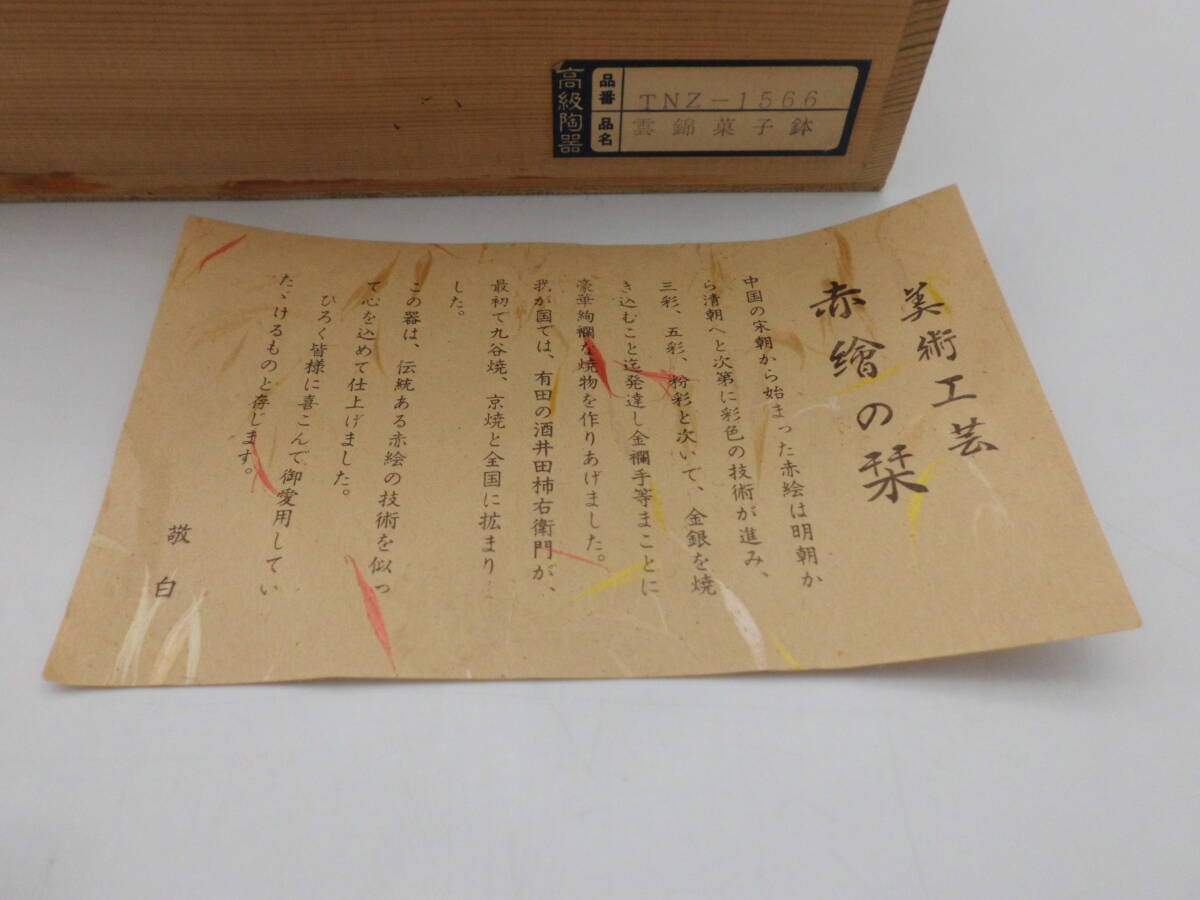 高級陶器
品番
TNZ-1566
品名
雲錦菓子鉢
美術工芸
赤繪の栞
中国の宋朝から始まった赤絵は明朝か
ら清朝へと次第に彩色の技術が進み、
三彩、五彩、粉彩と次いで、金銀を焼
き込むこと迄発達し金襴手等まことに
豪華絢爛な焼物を作りあげました。
我が国では、有田の酒井田柿右衛門が、
最初で九谷焼、京焼と全国に拡まり
した。
この器は、伝統ある赤絵の技術を似っ
て心を込めて仕上げました。
ひろく皆様に喜こんで御愛用してい
たゞけるものと存じます。
敬白